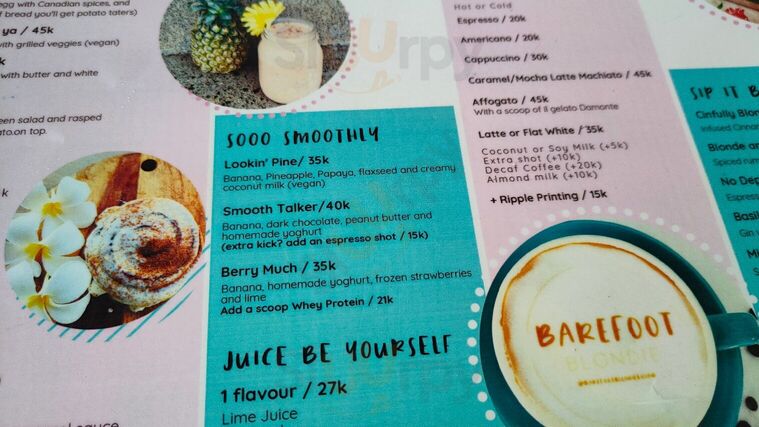 egg with Canadian spices, and
of bread you'll get potato taters)
ya / 45k
with grilled veggies (vegan)
with butter and white
een salad and rasped
ato.on top.
SOOO SMOOTHLY
Lookin' Pine/ 35k
Banana, Pineapple, Papaya, flaxseed and creamy
coconut milk (vegan)
Smooth Talker/40k
Banana, dark chocolate, peanut butter and
homemade yoghurt
(extra kick? add an espresso shot / 15k)
Berry Much / 35k
Banana, homemade yoghurt, frozen strawberries
and lime
Add a scoop Whey Protein / 21k
JUICE BE YOURSELF
1 flavour / 27k
Lime Juice
Hot or Cold
Espresso / 20k
Americano / 20k
Cappuccino / 30k
Caramel/Mocha Latte Machiato / 45k
Affogato / 45k
With a scoop of il gelato Damonte
Latte or Flat White / 35k
Coconut or Soy Milk (+5k)
Extra shot (+10k)
Decaf Coffee (+20k)
Almond milk (+10k)
+ Ripple Printing / 15k
BAREFOOT
BLONDIE
SIP IT B
Cinfully Blon
Infused Cinna
Blonde an
Spiced rum
No Dep
Espress
Basil
Gin
Mi
sauce
Sluurpy